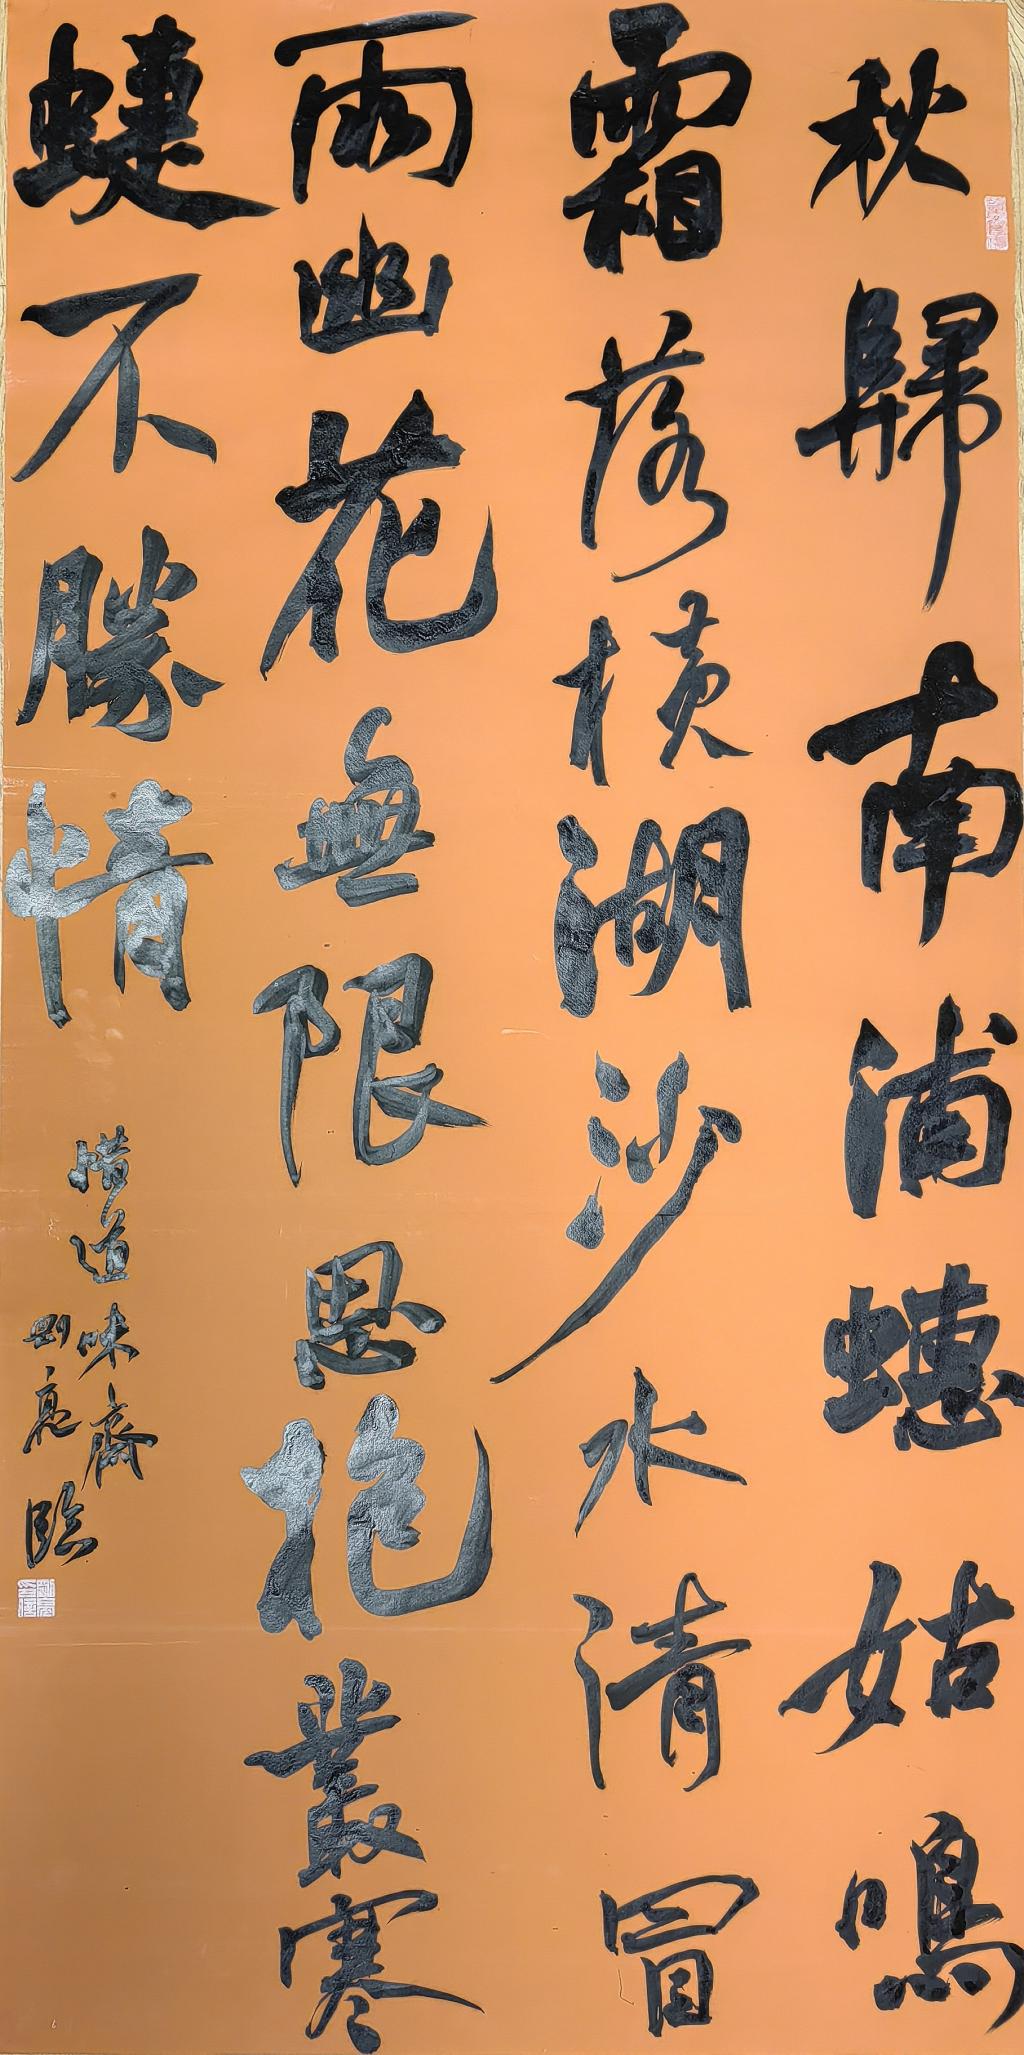 秋歸南浦蟪姑鳴
霜落橫湖沙水清冒
雨幽花無限思抱叢寒
蜨不勝情
惜道味齋
劉亮臨